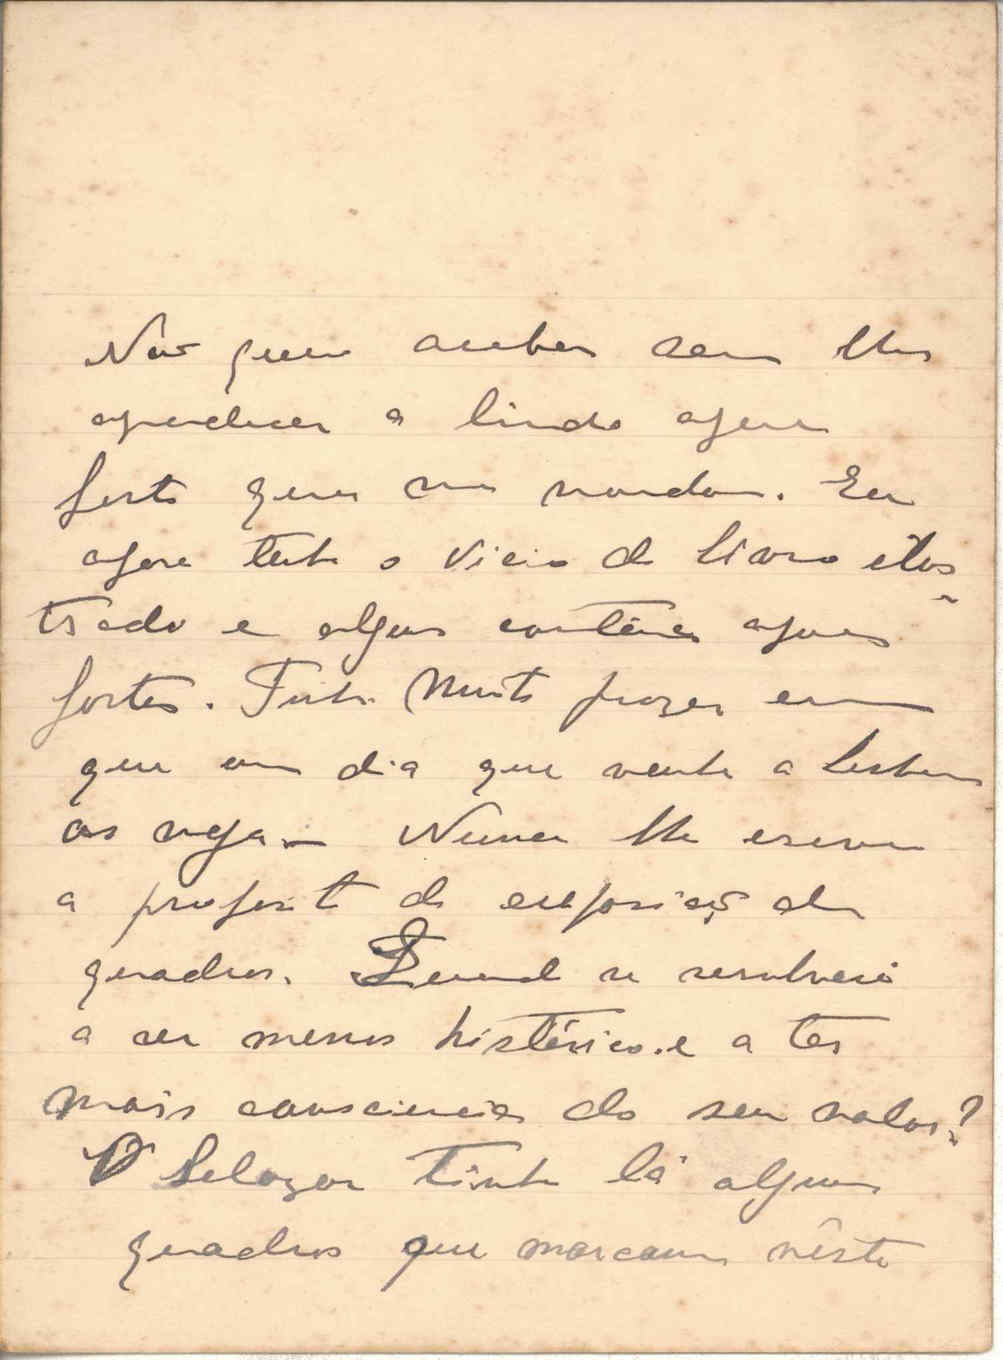 Não quero acabar sem lhe
agradecer a linda agua
forte que me mandou. Eu
agora tenho o vicio do livro ilus
trado e alguns contêem aguas
fortes. Tenho Muito prazer em
que um dia que venha a Lisboa
as veja — Nunca lhe escrevi
a proposito da exposição de
quadros. Quando se resolverá
a ser menos histérico e a ter
mais consciencia do seu valor?
O Salazar tinha lá alguns
quadros que marcavam nêste